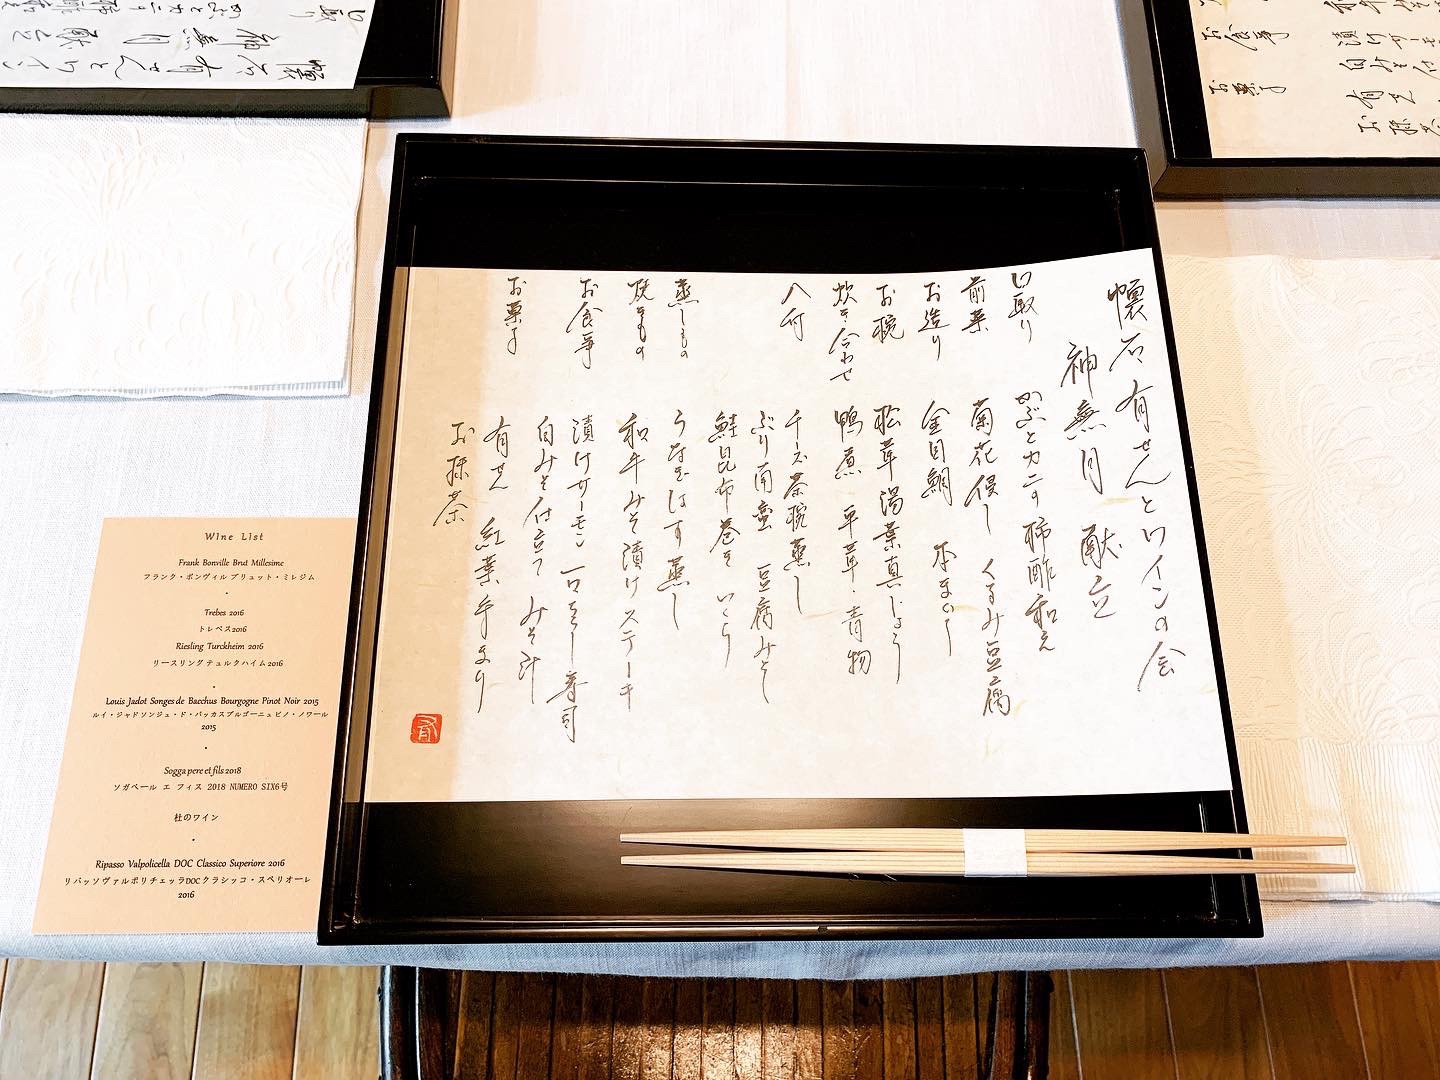 懐石有せんとワインの会
神無月 献立
口取り かぶとカニの柿酢和え
前菜 菊花浸し くるみ豆腐
お造り 金目鯛
お椀 松茸湯葉真じょう
炊き合わせ 鴨煮・平茸・青物
八寸 チーズ茶碗蒸し
ぶり南蛮 豆腐みそ
鮭昆布巻き いくら
蒸しもの うなぎはす蒸し
焼きもの 和牛みそ漬けステーキ
お食事 漬けサーモン 一口をし寿司
白みそ仕立て みそ汁
お菓子 有せん 紅葉手まり
お抹茶
Wine List
Frank Bonville Brut Millesime
フランク・ボンヴィル ブリュット・ミレジム
Trebes 2016
トレベス2016
Riesling Turckheim 2016
リースリング テュルクハイム 2016
Louis Jadot Songes de Bacchus Bourgogne Pinot Noir 2015
ルイ・ジャドソンジュ・ド・バッカスブルゴーニュ ピノ・ノワール
2015
Sogga pere et fils 2018
ソガペール エ フィス 2018 NUMERO SIX6号
杜のワイン
Ripasso Valpolicella DOC Classico Superiore 2016
リパッソヴァルポリチェッラDOCクラシッコ・スペリオーレ
2016
お食事
お菓子